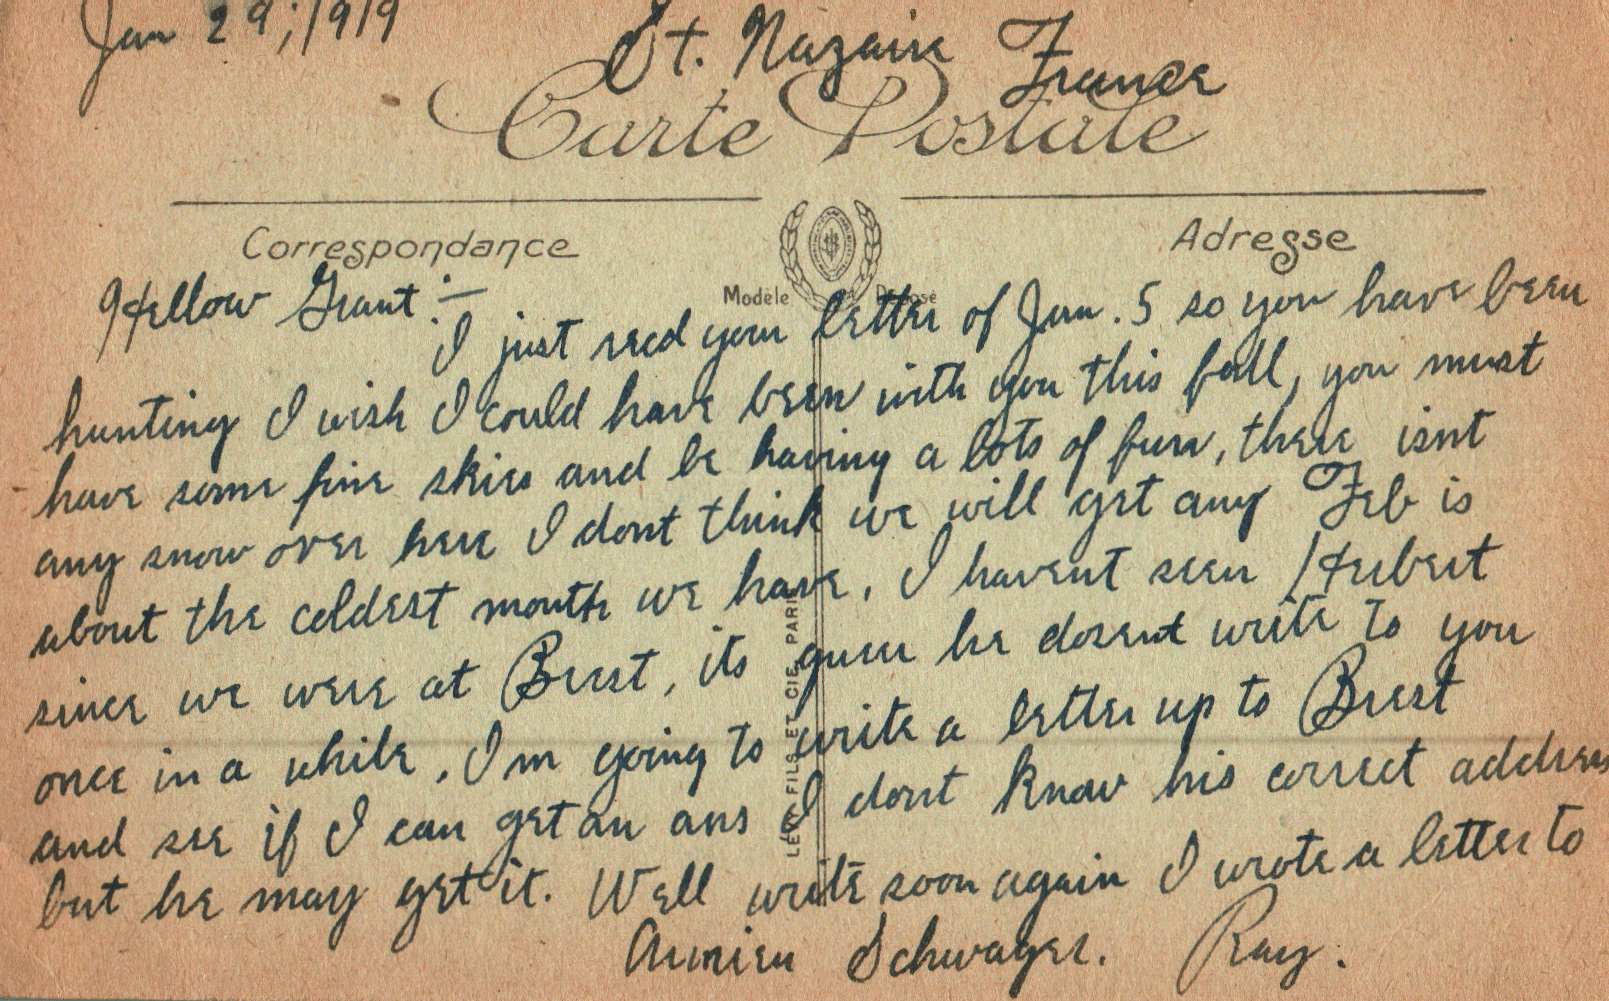 Jan 29, 1919
St. Nazaire France
Carte Postale
Correspondance
Adresse
Modèle Déposé
Hellow Grant :—
I just recd your letter of Jan. 5 so you have been
hunting I wish I could have been with you this fall, you must
have some fine skies and be having a lots of fun, there isnt
any snow over here I dont think we will get any Feb is
about the coldest month we have, I havent seen Hubert
since we were at Brest, its queer he dosent write to you
once in a while, I'm going to write a letter up to Brest
and see if I can get an ans I dont know his correct address
but he may get it. Well write soon again I wrote a letter to
Schwager. Ray.
LÉVY FILS ET CIE, PARIS